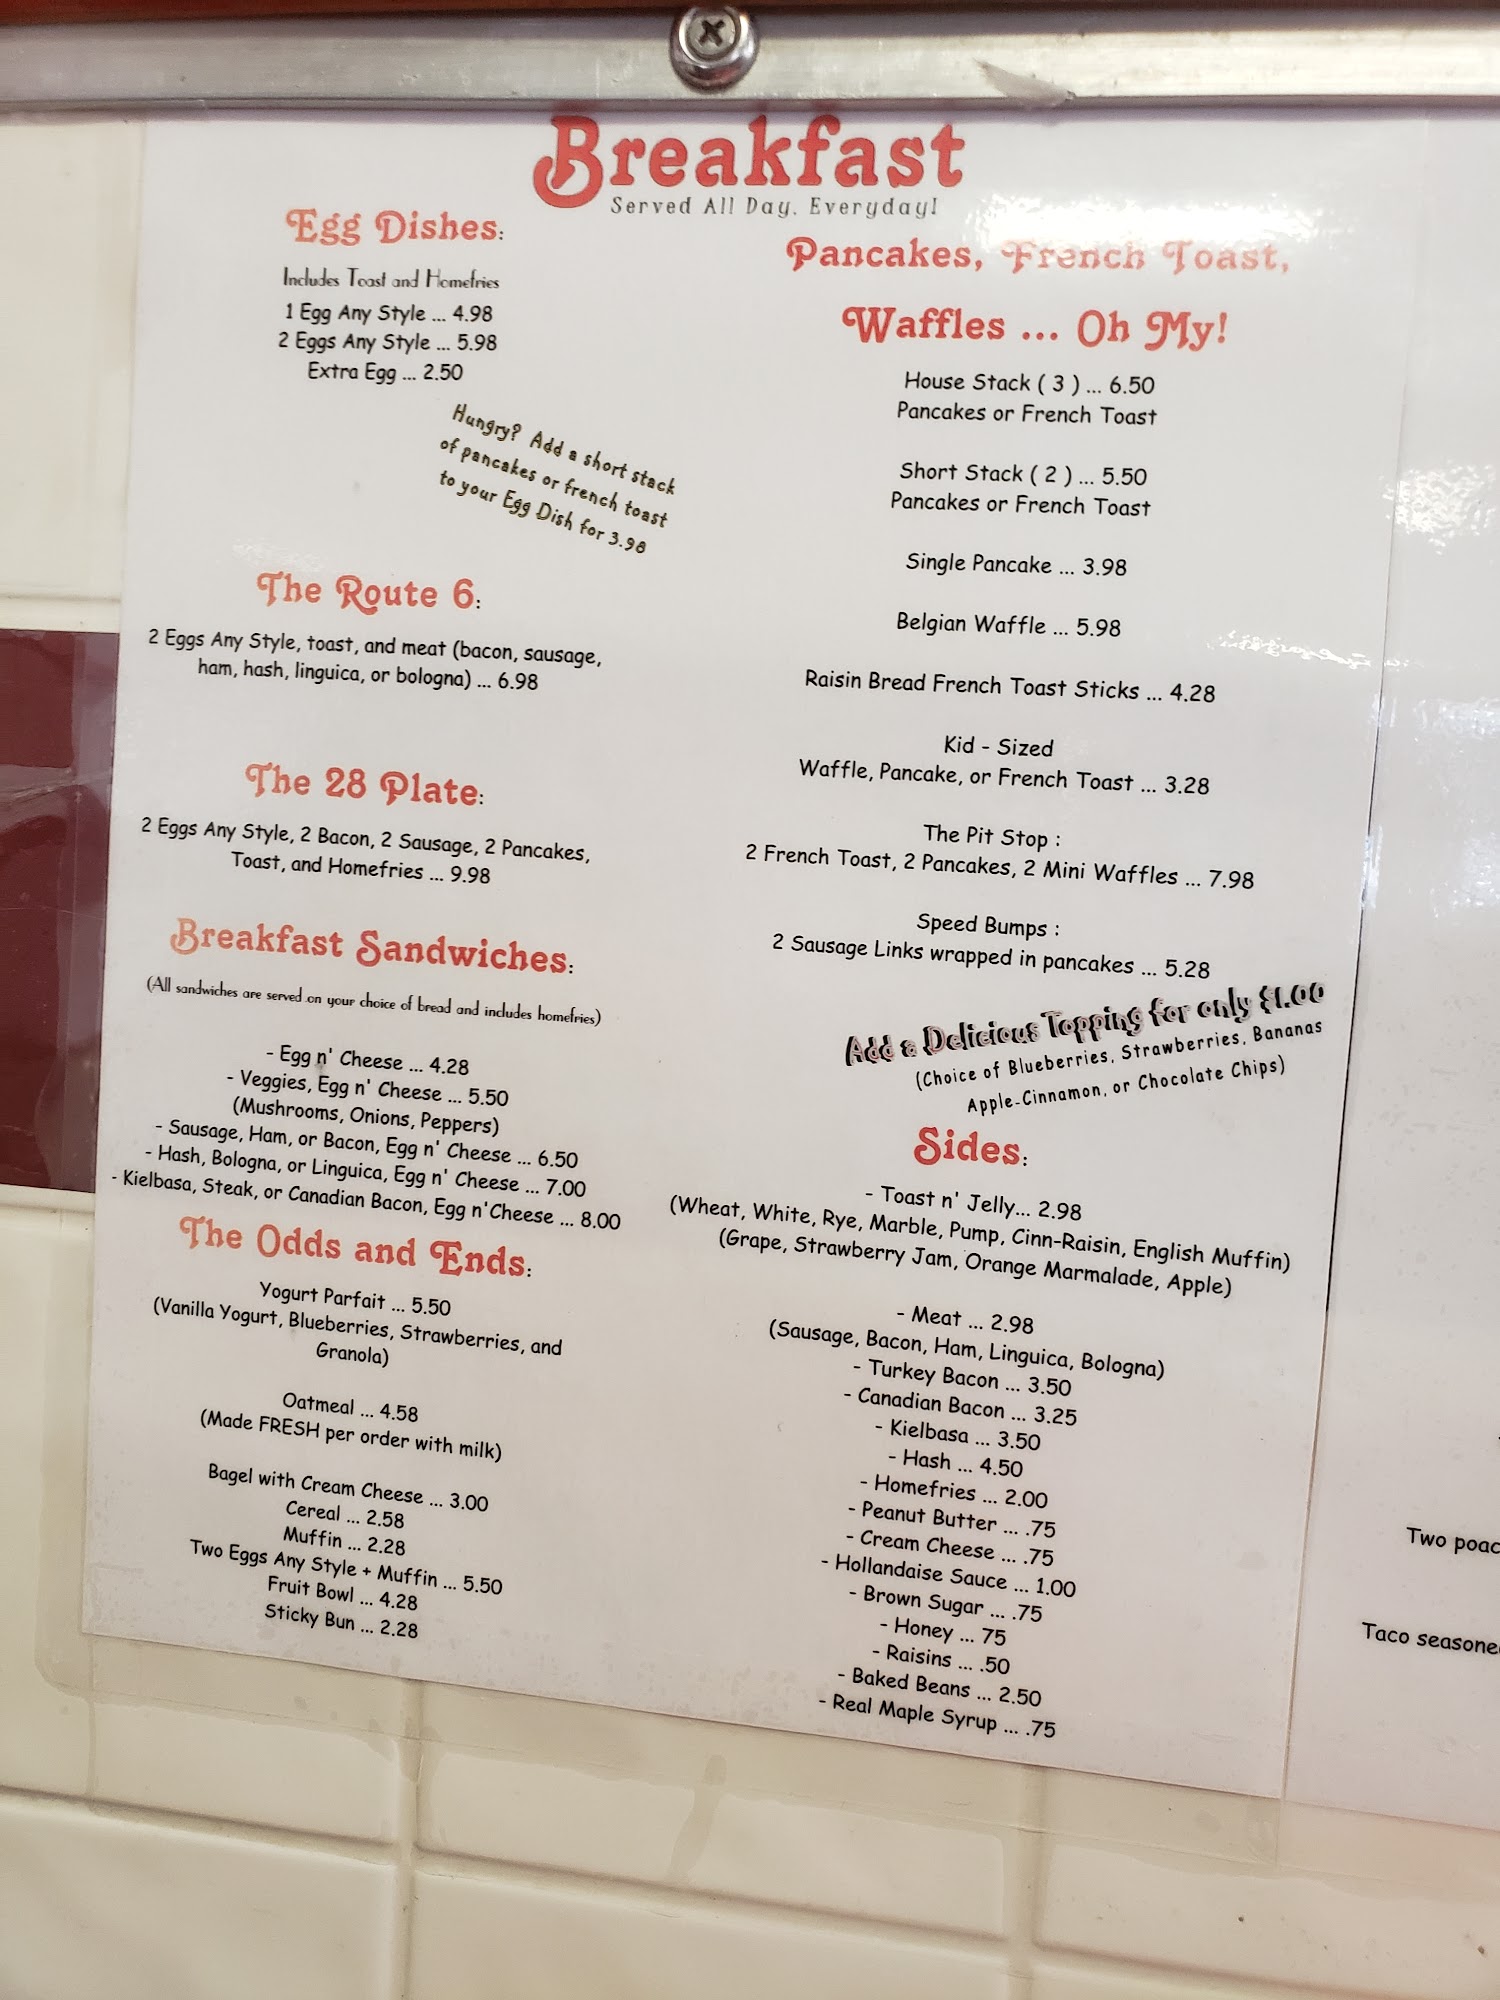 Breakfast
Served All Day, Everyday!
Egg Dishes:
Includes Toast and Homefries
1 Egg Any Style ... 4.98
2 Eggs Any Style ... 5.98
Extra Egg ... 2.50
Hungry? Add a short stack
of pancakes or french toast
to your Egg Dish for 3.98
The Route 6:
2 Eggs Any Style, toast, and meat (bacon, sausage,
ham, hash, linguica, or bologna) ... 6.98
The 28 Plate:
2 Eggs Any Style, 2 Bacon, 2 Sausage, 2 Pancakes,
Toast, and Homefries ... 9.98
Breakfast Sandwiches:
(All sandwiches are served on your choice of bread and includes homefries)
- Egg n' Cheese ... 4.28
- Veggies, Egg n' Cheese ... 5.50
(Mushrooms, Onions, Peppers)
- Sausage, Ham, or Bacon, Egg n' Cheese ... 6.50
- Hash, Bologna, or Linguica, Egg n' Cheese ... 7.00
- Kielbasa, Steak, or Canadian Bacon, Egg n'Cheese ... 8.00
The Odds and Ends:
Yogurt Parfait ... 5.50
(Vanilla Yogurt, Blueberries, Strawberries, and
Granola)
Oatmeal ... 4.58
(Made FRESH per order with milk)
Bagel with Cream Cheese ... 3.00
Cereal ... 2.58
Muffin ... 2.28
Two Eggs Any Style + Muffin ... 5.50
Fruit Bowl ... 4.28
Sticky Bun ... 2.28
Pancakes, French Toast,
Waffles ... Oh My!
House Stack ( 3 ) ... 6.50
Pancakes or French Toast
Short Stack ( 2 ) ... 5.50
Pancakes or French Toast
Single Pancake ... 3.98
Belgian Waffle ... 5.98
Raisin Bread French Toast Sticks ... 4.28
Kid - Sized
Waffle, Pancake, or French Toast ... 3.28
The Pit Stop :
2 French Toast, 2 Pancakes, 2 Mini Waffles ... 7.98
Speed Bumps :
2 Sausage Links wrapped in pancakes ... 5.28
Add a Delicious Topping for only $1.00
(Choice of Blueberries, Strawberries, Bananas
Apple-Cinnamon, or Chocolate Chips)
Sides:
- Toast n' Jelly... 2.98
(Wheat, White, Rye, Marble, Pump, Cinn-Raisin, English Muffin)
(Grape, Strawberry Jam, Orange Marmalade, Apple)
- Meat ... 2.98
(Sausage, Bacon, Ham, Linguica, Bologna)
- Turkey Bacon ... 3.50
- Canadian Bacon ... 3.25
- Kielbasa ... 3.50
- Hash ... 4.50
- Homefries ... 2.00
- Peanut Butter ... .75
- Cream Cheese ... .75
- Hollandaise Sauce ... 1.00
- Brown Sugar ... .75
- Honey ... 75
- Raisins ... .50
- Baked Beans ... 2.50
- Real Maple Syrup ... .75
Two poac
Taco seasone